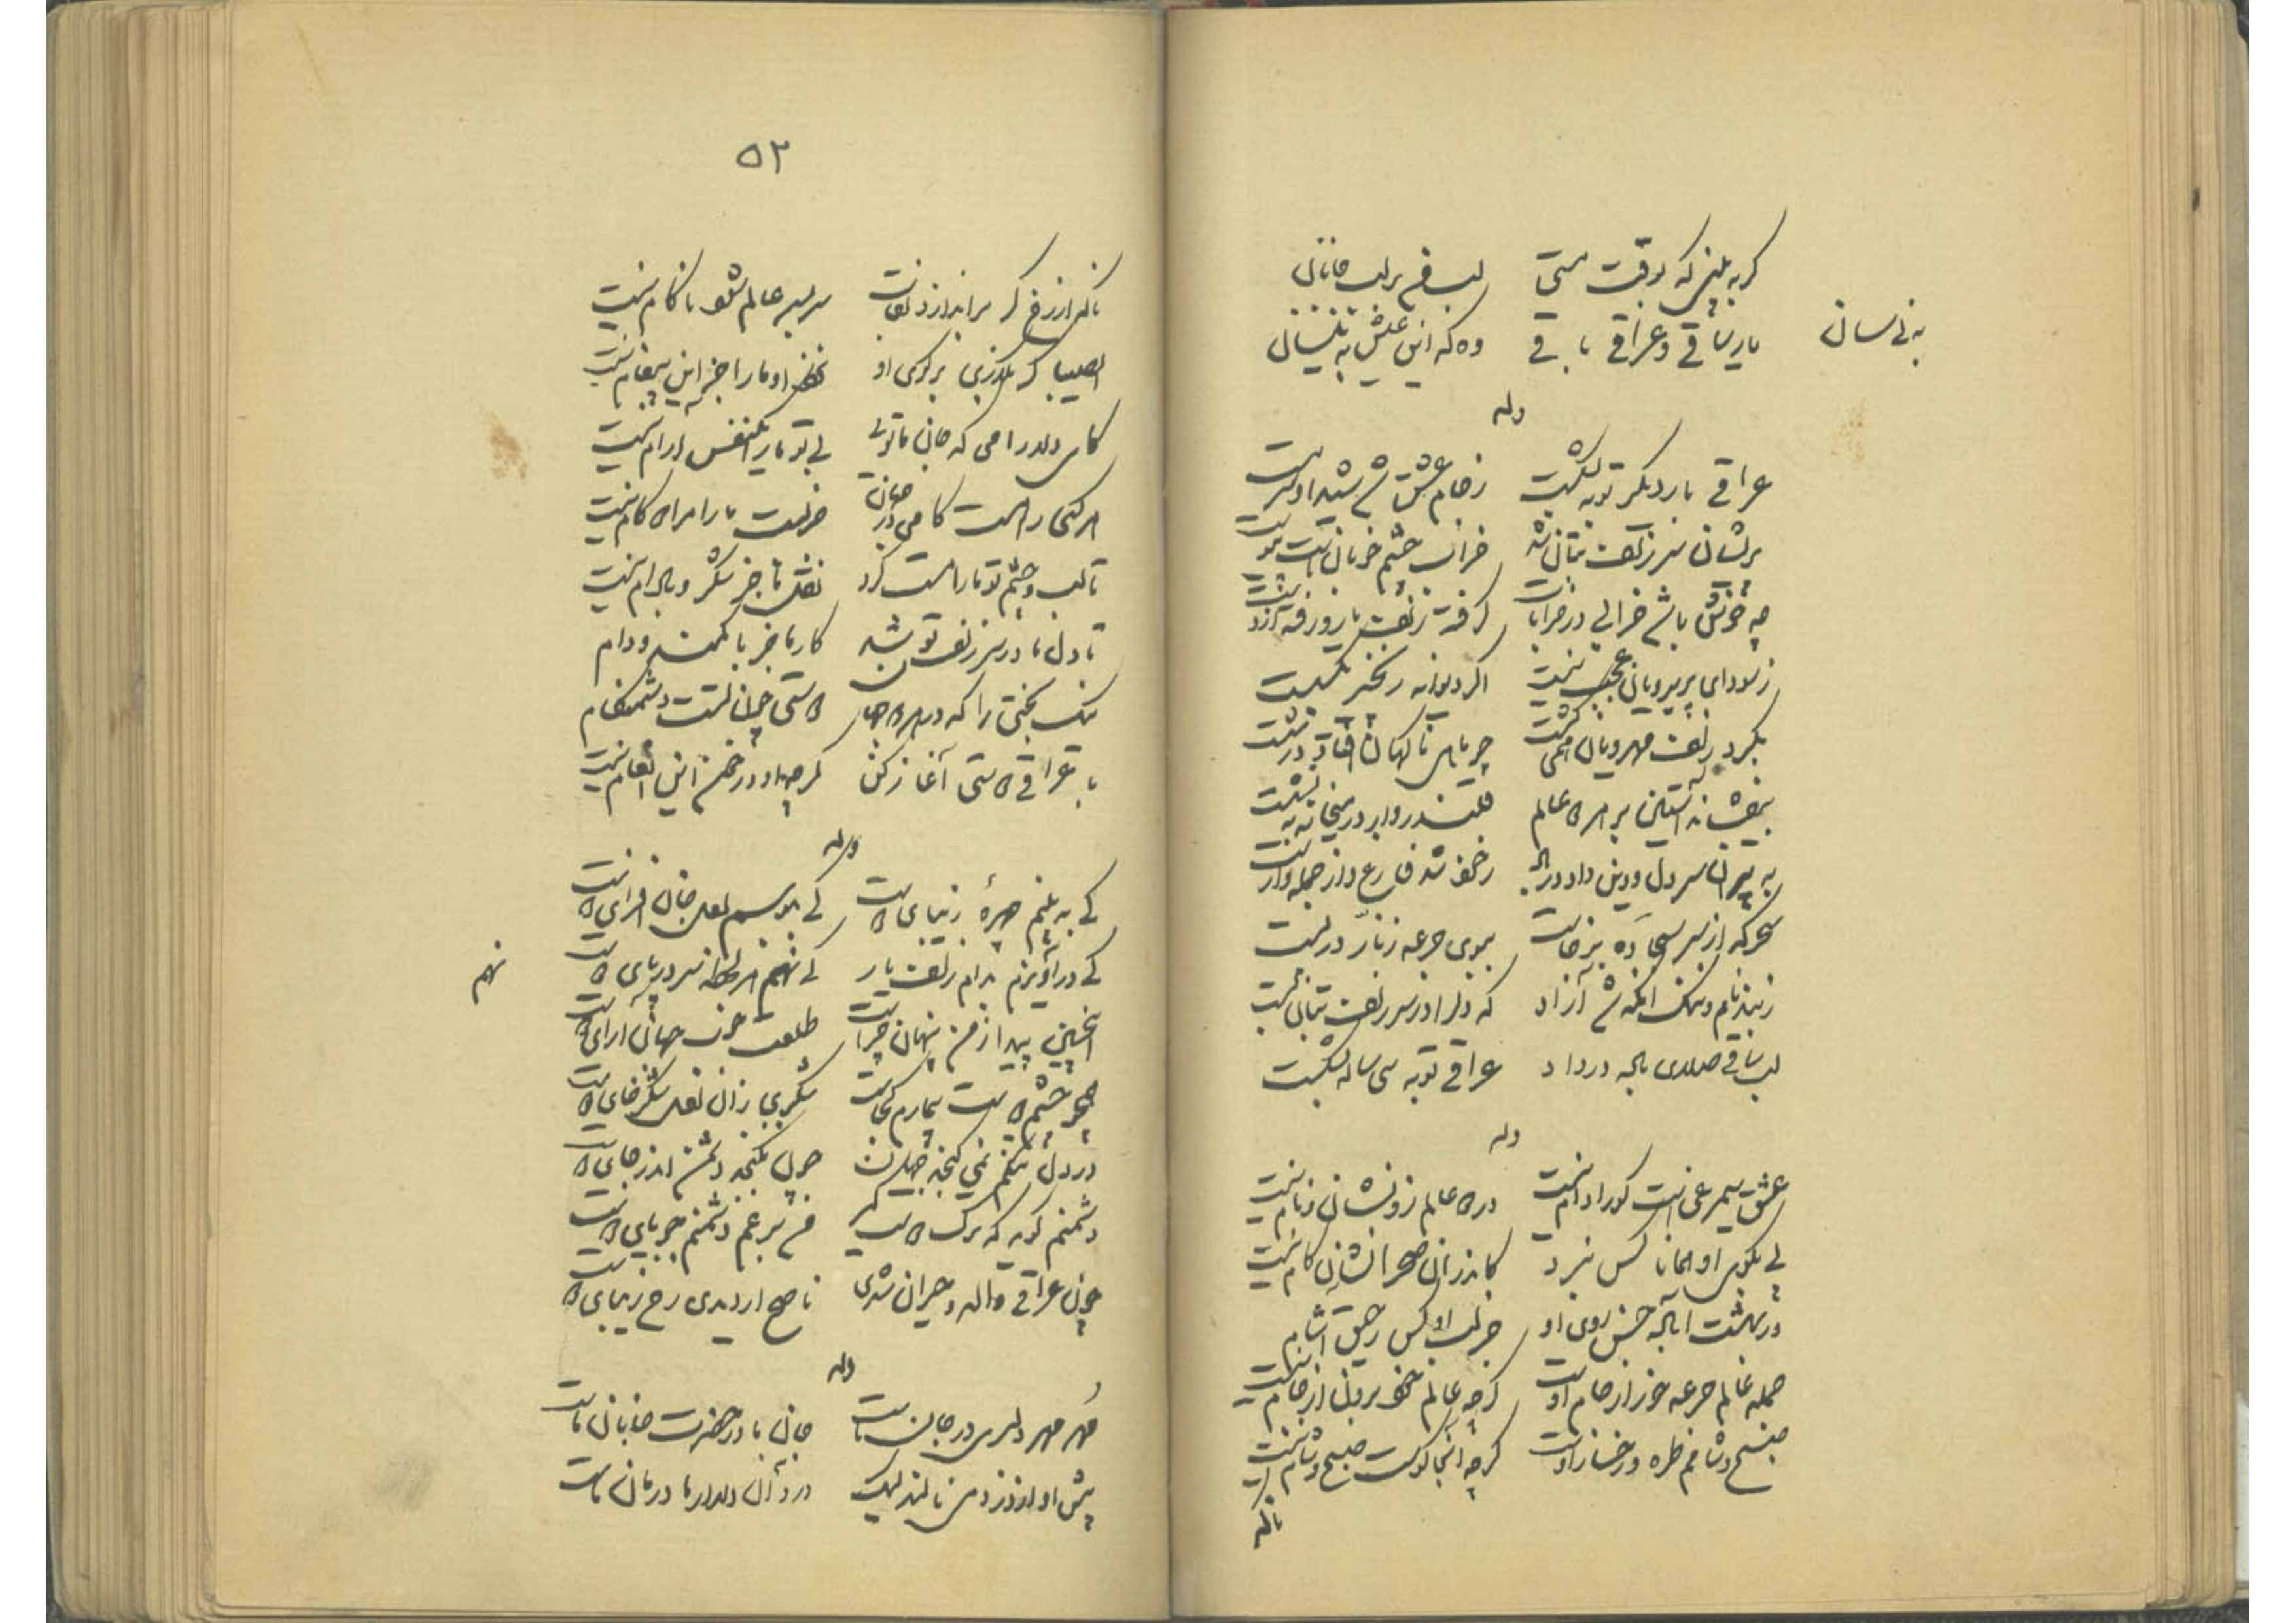 گر به بینی که بوقت مستی لب من بر لب جانان
یار ساقی و عراقی باقی وه که این عیش به نیسان
به نی سان
وله
عراقی بار دیگر توبه بشکست ز جام عشق شد شیدا و سرمست
پریشان سر زلف بتان شد خراب چشم خوبان است پیوست
چه خوش باشد خرابی در خرابات گرفته زلف یار و رفته از دست
ز سودای پریرویان عجب نیست اگر دیوانه زنجیر بگسست
بگرد زلف مهرویان همی گشت چو ماهی ناگهان افتاد در شست
بیفشاند آستین بر هر دو عالم قلندروار در میخانه بنشست
به پیران سر دل و دین داد بر باد ز خود شد فارغ و از جمله وارست
سحرگه از سر سجاده برخاست ببوی جرعه زنار در بست
ز بند نام و ننگ آنگه شد آزاد که دل را در سر زلف بتان بست
لب ساقی صلای باده در داد عراقی توبه سی ساله بشکست
وله
عشق سیمرغی است کورا دام نیست در دو عالم زو نشان و نام نیست
پی بکوی او همانا کس نبرد کاندر آن صحرا نشان گام نیست
در بهشت آباد حسن روی او جز لب او کس رحیق آشام
جمله عالم جرعه خور از جام اوست گرچه عالم خود برون از جام نیست
صبح و شامم طره و رخسار اوست گرچه آنجا کوست صبح و شام نیست
ناگه
۵۳
ناگه از رخ گر براندازد نقاب سربسر عالم شود ناکام نیست
ای صبا گر بگذری بر کوی او نزد او ما را جز این پیغام نیست
کای دلارامی که جان ما توئی بی تو ما را یکنفس آرام نیست
هر کسی را هست کامی در جهان جز لبت ما را مراد و کام نیست
تا لب و چشم تو ما را مست کرد نقل ما جز شکر و بادام نیست
تا دل ما در سر زلف تو شد کار ما جز با کمند و دام
نیک بختی را که در هر دو جهان دوستی چون تست دشمنکام
با عراقی دوستی آغاز کن گرچه او در خور این انعام نیست
وله
کی به بینم چهرهٔ زیبای دوست کی ببوسم لعل جان افزای دوست
کی درآویزم بدام زلف یار کی نهم هر لحظه سر در پای دوست
نهم
اینچنین پیدا ز من پنهان چراست طلعت خوب جهان آرای دوست
همچو چشم دوست بیمارم کجاست شکری زان لعل شکرخای دوست
در دل تنگم نمی گنجد جهان چون بگنجد دشمن اندر جای دوست
دشمنم گوید که ترک دوست گیر من برغم دشمنم جویای دوست
چون عراقی واله و حیران شدی ناصح ار دیدی رخ زیبای دوست
وله
مهر مهر دلبری در جان ماست جان ما در حضرت جانان ماست
پیش او از درد می نالند لیک درد آن دلدار ما درمان ماست